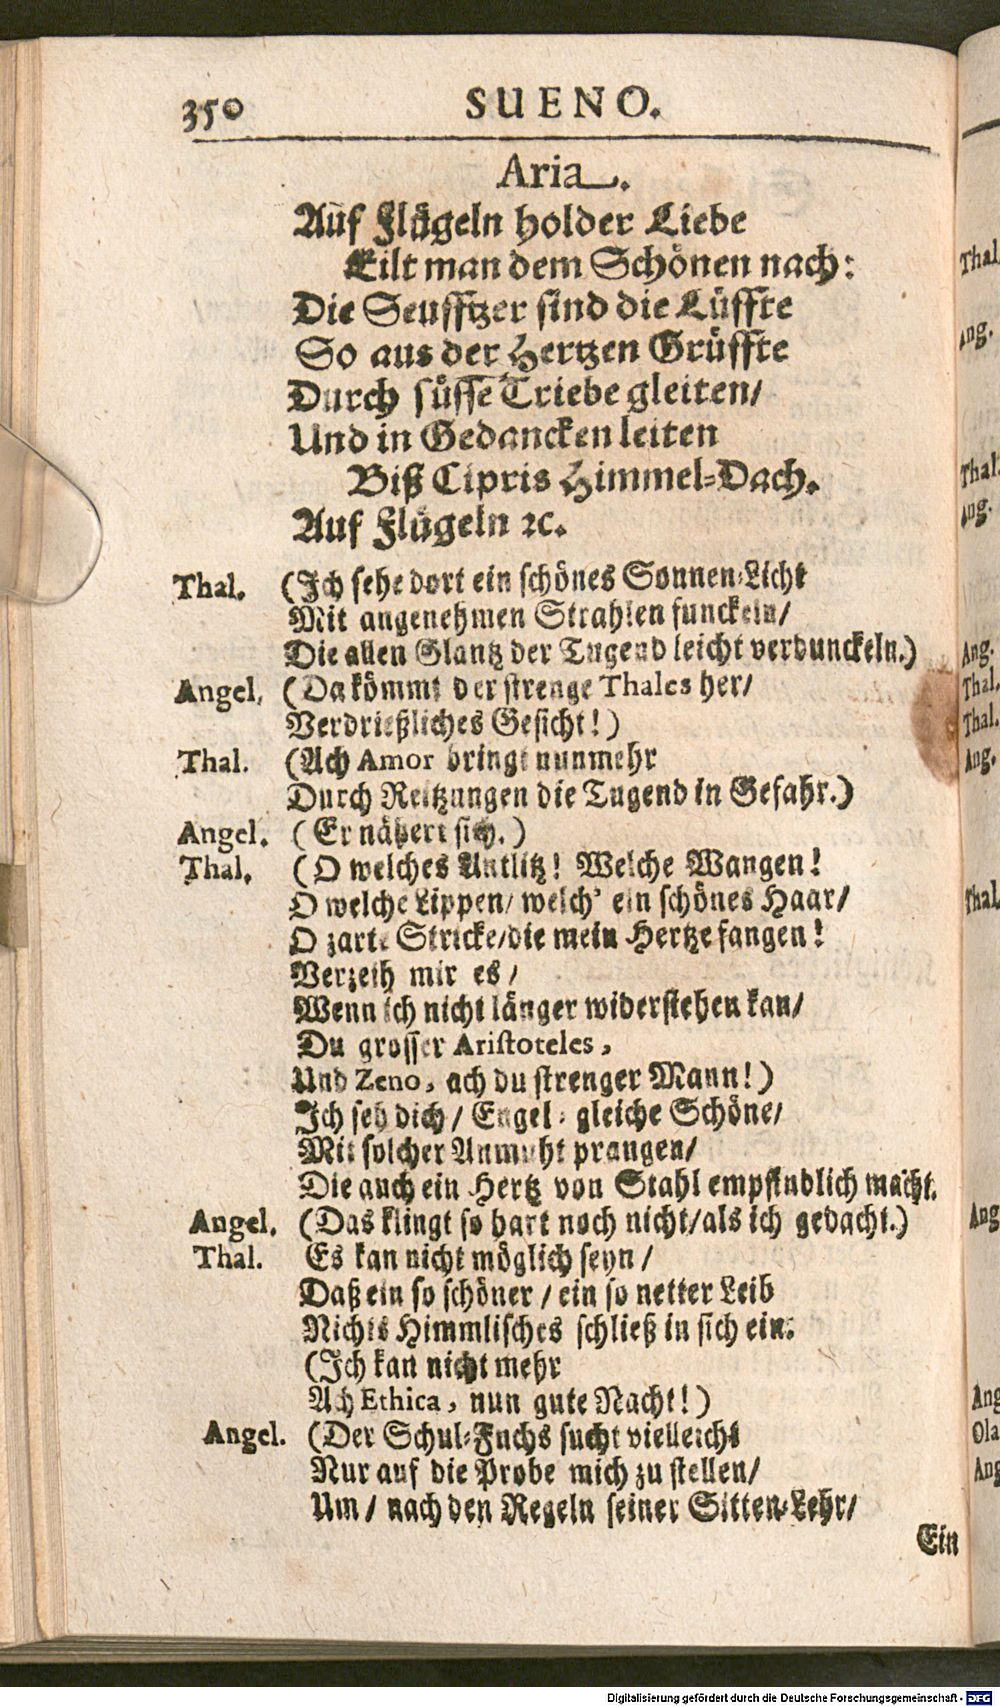 350 SUENO.
Aria.
Auf Flügeln holder Liebe
Eilt man dem Schönen nach:
Die Seufftzer sind die Lüffte
So aus der Hertzen Grüffte
Durch süsse Triebe gleiten/
Und in Gedancken leiten
Biß Cipris Himmel-Dach.
Auf Flügeln ꝛc.
Thal. (Ich sehe dort ein schönes Sonnen-Licht
Mit angenehmen Strahlen funckeln/
Die allen Glantz der Tugend leicht verdunckeln.)
Angel. (Da kömmt der strenge Thales her/
Verdrießliches Gesicht!)
Thal. (Ach Amor bringt nunmehr
Durch Reitzungen die Tugend in Gefahr.)
Angel. (Er nähert sich.)
Thal. (O welches Antlitz! Welche Wangen!
O welche Lippen/ welch' ein schönes Haar/
O zarte Stricke/die mein Hertze fangen!
Verzeih mir es/
Wenn ich nicht länger widerstehen kan/
Du grosser Aristoteles,
Und Zeno, ach du strenger Mann!)
Ich seh dich/ Engel-gleiche Schöne/
Mit solcher Anmuht prangen/
Die auch ein Hertz von Stahl empfindlich macht.
Angel. (Das klingt so hart noch nicht/als ich gedacht.)
Thal. Es kan nicht möglich seyn/
Daß ein so schöner/ ein so netter Leib
Nichts Himmlisches schließ in sich ein.
(Ich kan nicht mehr
Ach Ethica, nun gute Nacht!)
Angel. (Der Schul-Fuchs sucht vielleicht
Nur auf die Probe mich zu stellen/
Um/ nach den Regeln seiner Sitten-Lehr/
Ein
Thal.
Ang.
Thal.
Ang.
Ang.
Thal.
Thal.
Ang.
Thal.
Ang
Ang
Ola
Ang
Digitalisierung gefördert durch die Deutsche Forschungsgemeinschaft - DFG